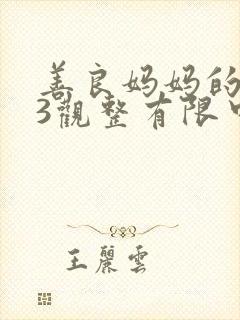 善良妈妈的
3觀整有限
王麗雲